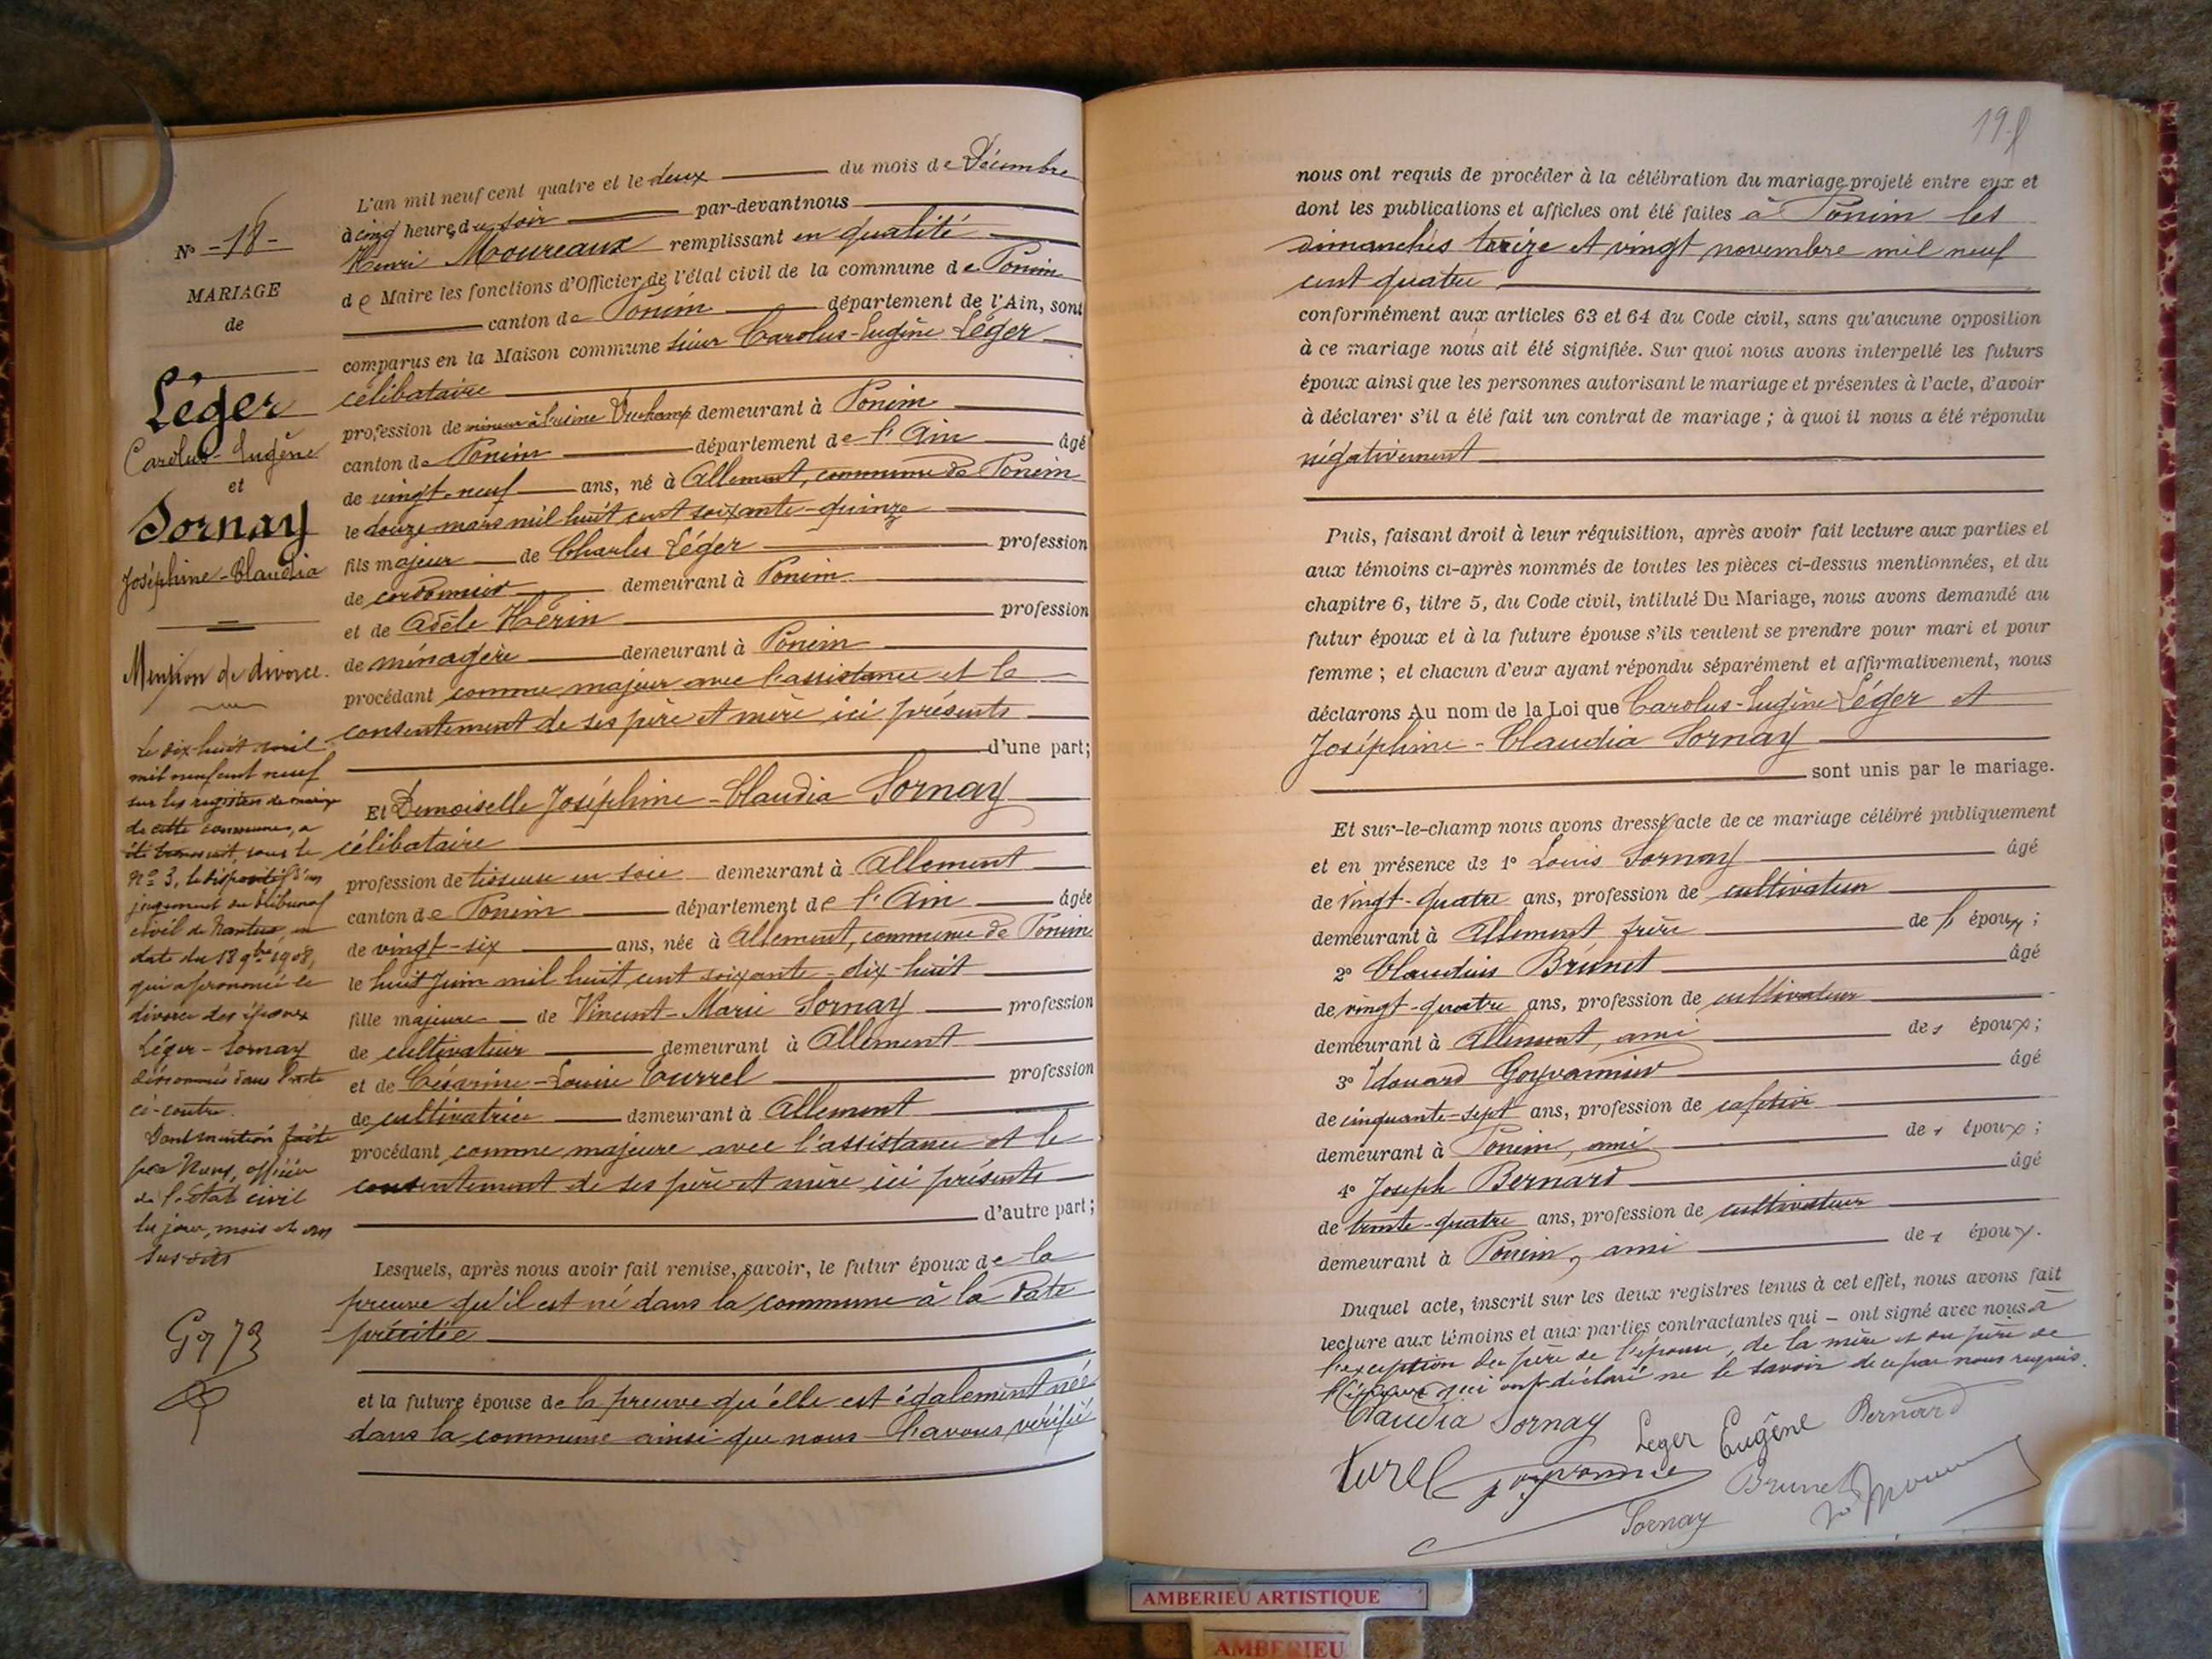 N° - 18 -
MARIAGE
de
Léger
Carolus-Eugène
et
Sornay
Joséphine-Claudia
Mention de divorce.
Le dix-huit avril
mil neuf cent neuf
sur les registres de mariage
de cette commune, a
été transcrit, sous le
N° 3, le dispositif d'un
jugement du tribunal
civil de Nantua en
date du 18 9bre 1908,
qui a prononcé le
divorce des époux
Léger - Sornay
dénommés dans l'acte
ci-contre.
Dont mention faite
par Nous, officier
de l'état civil
les jour, mois et an
susdits
L'an mil neuf cent quatre et le deux du mois de Décembre
à cinq heures du soir par-devant nous
Henri Moureaux remplissant en qualité
de Maire les fonctions d'Officier de l'état civil de la commune de Poncin
canton de Poncin département de l'Ain, sont
comparus en la Maison commune sieur Carolus-Eugène Léger
célibataire
profession de à l'usine Duchamp demeurant à Poncin
canton de Poncin département de l'Ain âgé
de vingt-neuf ans, né à Allement, commune de Poncin
le douze mars mil huit cent soixante-quinze
fils majeur de Charles Léger profession
de cordonnier demeurant à Poncin
et de Adèle Hérin profession
de ménagère demeurant à Poncin
procédant comme majeur avec l'assistance et le
consentement de ses père et mère ici présents
d'une part;
Et Demoiselle Joséphine-Claudia Sornay
célibataire
profession de tisseuse en soie demeurant à Allement
canton de Poncin département de l'Ain âgée
de vingt-six ans, née à Allement, commune de Poncin
le huit Juin mil huit cent soixante-dix-huit
fille majeure de Vincent-Marie Sornay profession
de cultivateur demeurant à Allement
et de Césarine-Louise Currel profession
de cultivatrice demeurant à Allement
procédant comme majeure avec l'assistance et le
consentement de ses père et mère ici présents
d'autre part;
Lesquels, après nous avoir fait remise, savoir, le futur époux de la
preuve qu'il est né dans la commune à la date
précitée
et la future épouse de la preuve qu'elle est également née
dans la commune ainsi que nous l'avons vérifié
nous ont requis de procéder à la célébration du mariage projeté entre eux et
dont les publications et affiches ont été faites à Poncin les
dimanches treize et vingt novembre mil neuf
cent quatre
conformément aux articles 63 et 64 du Code civil, sans qu'aucune opposition
à ce mariage nous ait été signifiée. Sur quoi nous avons interpellé les futurs
époux ainsi que les personnes autorisant le mariage et présentes à l'acte, d'avoir
à déclarer s'il a été fait un contrat de mariage ; à quoi il nous a été répondu
négativement
Puis, faisant droit à leur réquisition, après avoir fait lecture aux parties et
aux témoins ci-après nommés de toutes les pièces ci-dessus mentionnées, et du
chapitre 6, titre 5, du Code civil, intitulé Du Mariage, nous avons demandé au
futur époux et à la future épouse s'ils veulent se prendre pour mari et pour
femme ; et chacun d'eux ayant répondu séparément et affirmativement, nous
déclarons Au nom de la Loi que Carolus-Eugène Léger et
Joséphine-Claudia Sornay
sont unis par le mariage.
Et sur-le-champ nous avons dressé acte de ce mariage célébré publiquement
et en présence de 1° Louis Sornay âgé
de vingt-quatre ans, profession de cultivateur
demeurant à Allement frère de l' époux ;
2° Claudius Brunet âgé
de vingt-quatre ans, profession de cultivateur
demeurant à Allement, ami des époux ;
3° Edouard Goyvannier âgé
de cinquante-sept ans, profession de cafetier
demeurant à Poncin, ami des époux ;
4° Joseph Bernard âgé
de trente-quatre ans, profession de cultivateur
demeurant à Poncin, ami des époux.
Duquel acte, inscrit sur les deux registres tenus à cet effet, nous avons fait
lecture aux témoins et aux parties contractantes qui - ont signé avec nous à
l'exception du père de l'épouse, de la mère et du père de
qui ont déclaré ne le savoir de ce par nous requis.
Claudia Sornay Leger Eugêne Bernard
Brunet
Sornay
AMBERIEU ARTISTIQUE
AMBERIEU